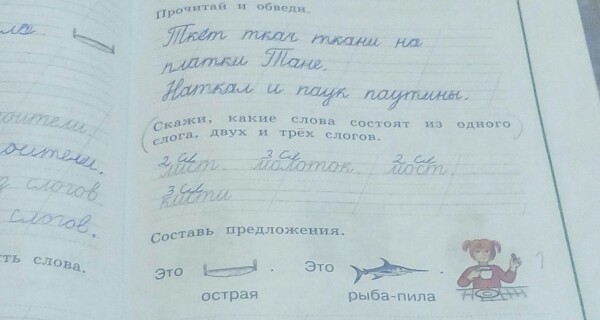 ла.
Прочитай и обведи.
Ткёт ткач ткани на
платки Тане.
Наткал и паук паутины.
оители.
Скажи, какие слова состоят из одного
слога, двух и трёх слогов.
оители.
2 сл 3 сл 2 сл
лист. молоток. мост.
слогов.
3 сл
кисти
слогов.
Составь предложения.
ть слова.
Это . Это .
острая рыба-пила